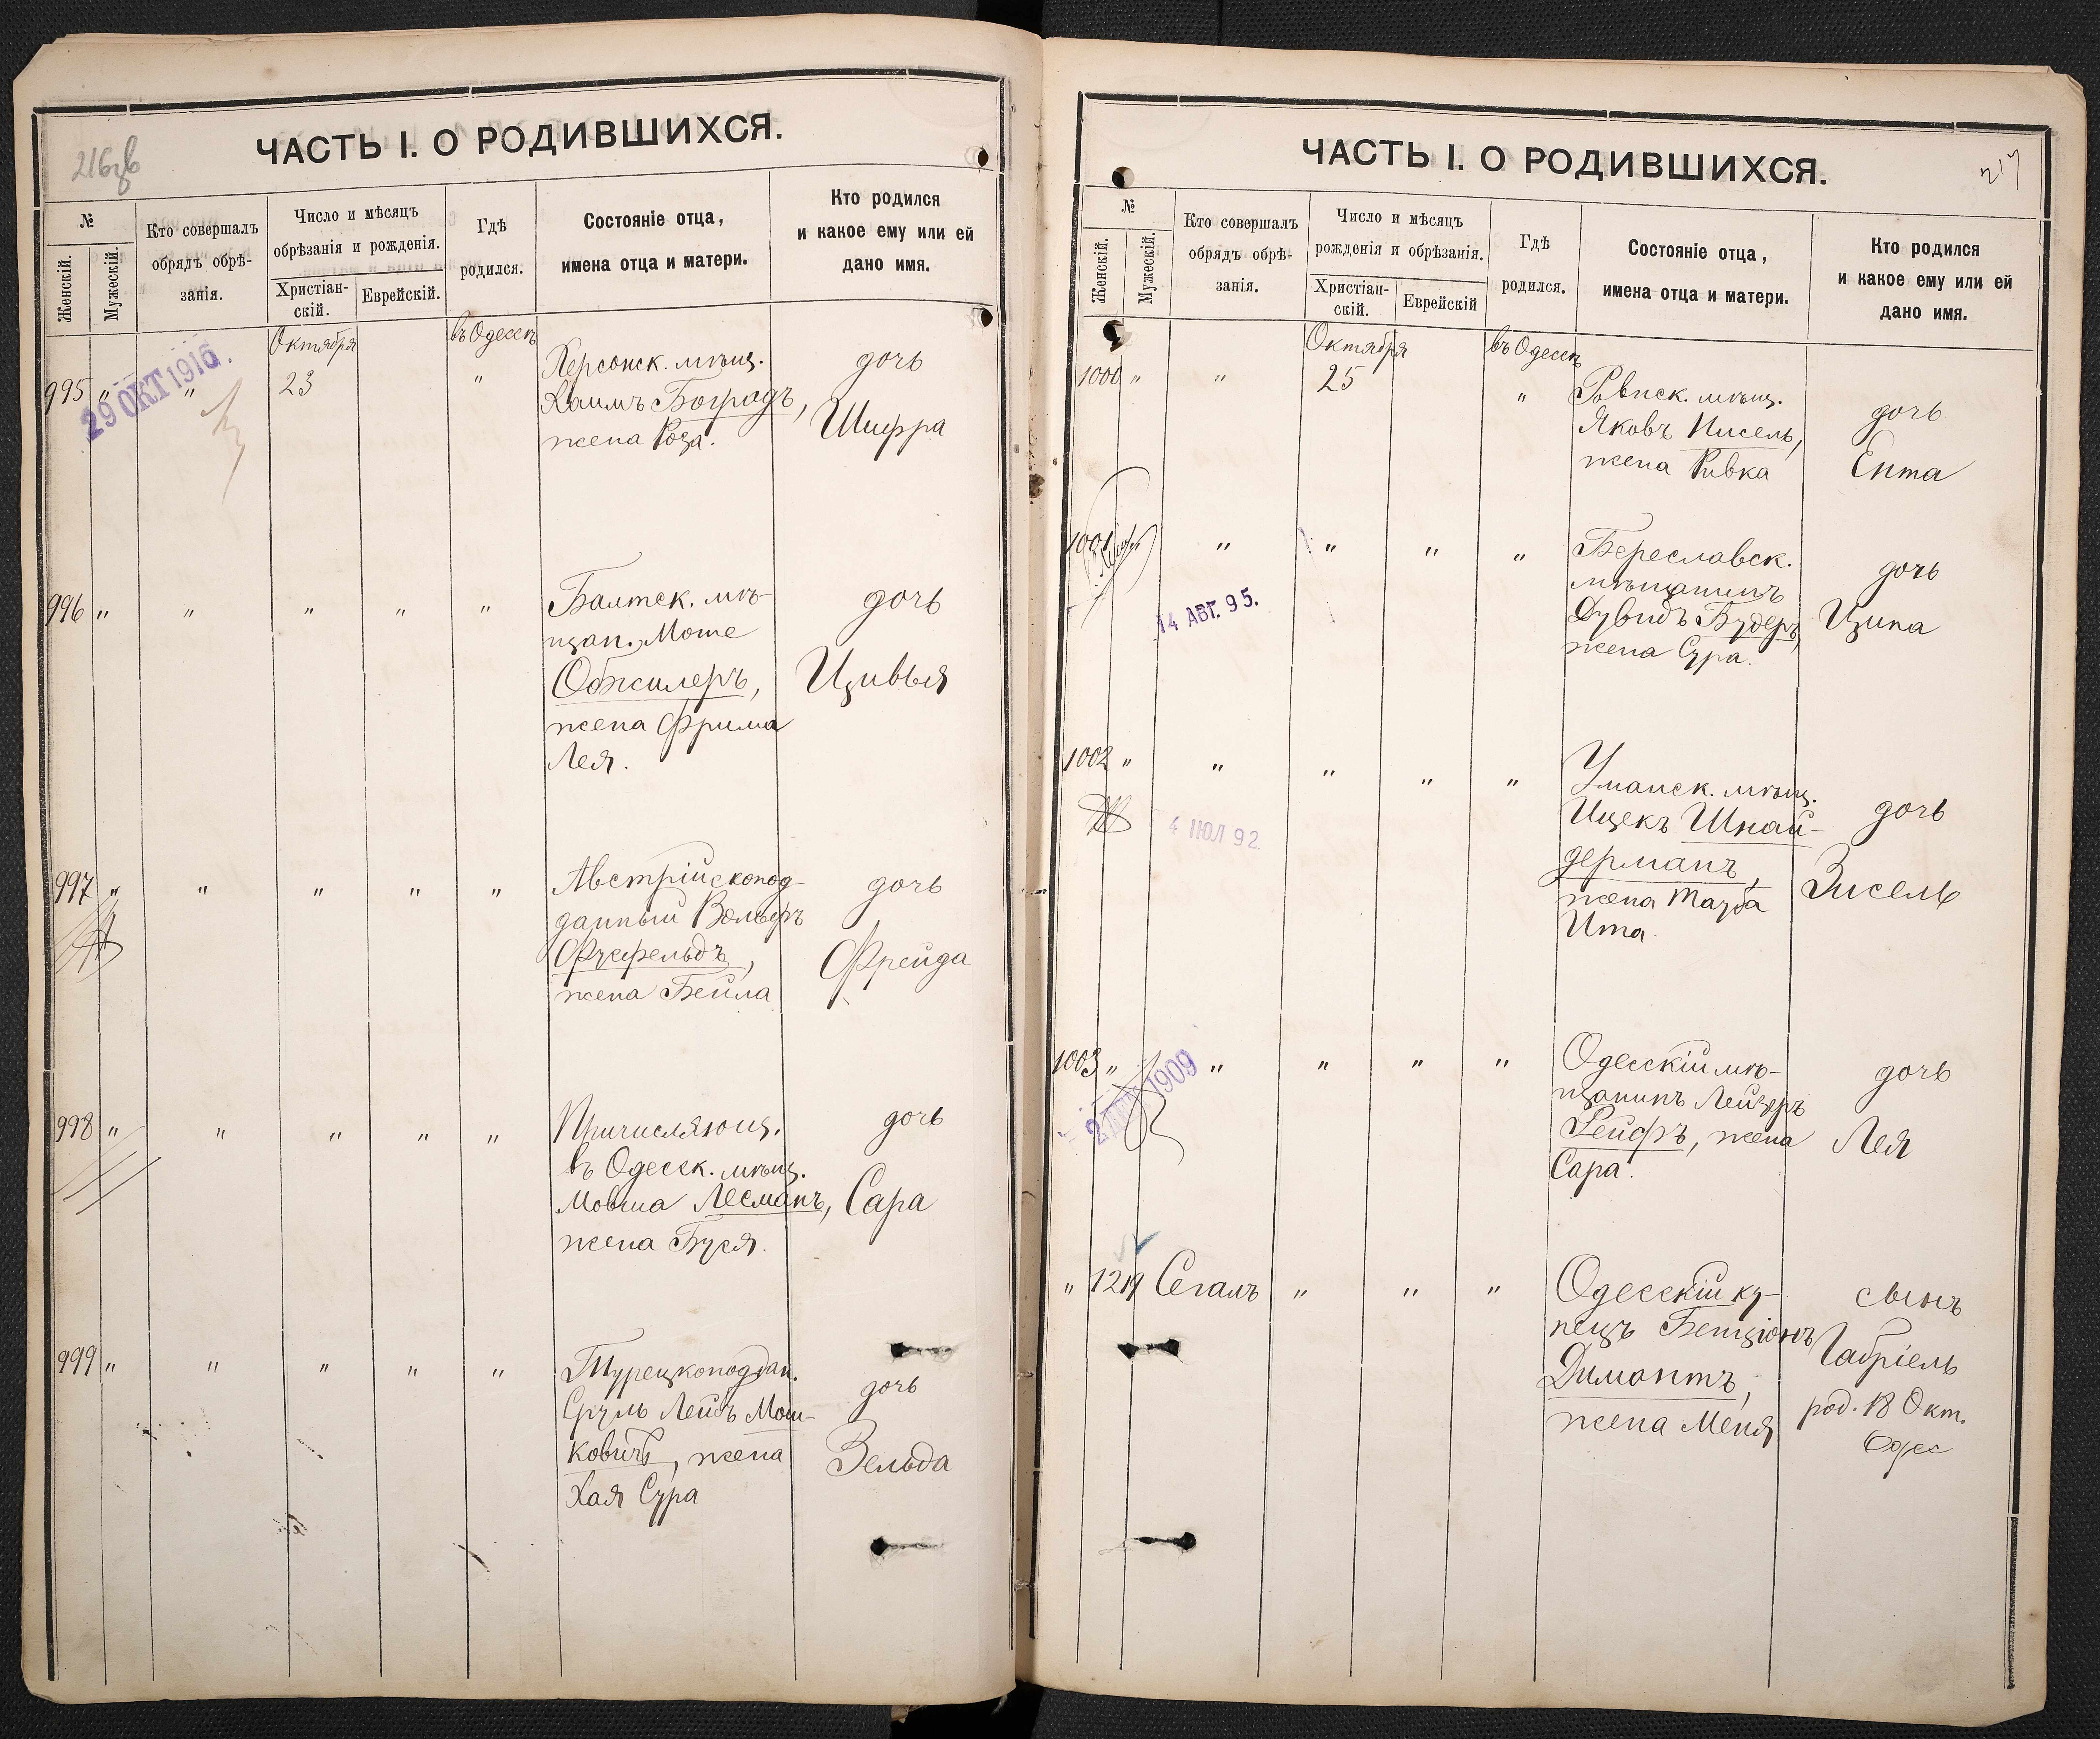 216об
ЧАСТЬ I. О РОДИВШИХСЯ.
№
Женскій.
Мужескій.
Кто совершалъ
обрядъ обрѣ-
занія.
Число и мѣсяцъ
обрѣзанія и рожденія.
Христіан-
скій.
Еврейскій.
Гдѣ
родился.
Состояніе отца,
имена отца и матери.
Кто родился
и какое ему или ей
дано имя.
Октября
въ Одессѣ
995 " " 23 "
29 ОКТ 1916.
Херсонск. мѣщ.
Хаимъ Боградъ,
жена Роза.
дочь
Шифра
996 " " " " "
Балтск. мѣ-
щан. Моше
Обжилеръ,
жена Фрима
Лея.
дочь
Цивья
997 " " " " "
Австрійскопод-
данный Вольфъ
Фусфельдъ,
жена Бейла
дочь
Фрейда
998 " " " " "
Причисляющ.
въ Одесск. мѣщ.
Мовша Лесманъ,
жена Буся.
дочь
Сара
999 " " " " "
Турецкоподдан.
Сруль Лейбъ Мош-
ковичъ, жена
Хая Сура
дочь
Зельда
217
ЧАСТЬ I. О РОДИВШИХСЯ.
№
Женскій.
Мужескій.
Кто совершалъ
обрядъ обрѣ-
занія.
Число и мѣсяцъ
рожденія и обрѣзанія.
Христіан-
скій.
Еврейскій
Гдѣ
родился.
Состояніе отца,
имена отца и матери.
Кто родился
и какое ему или ей
дано имя.
Октября
въ Одессѣ
1000 " " 25 "
Ровнск. мѣщ.
Яковъ Нисель,
жена Ривка
дочь
Ента
1001 " " " "
14 АВГ. 95.
Береславск.
мѣщанинъ
Дувидъ Будеръ,
жена Сура.
дочь
Ципа
1002 " " " " "
4 ІЮЛ 92
Уманск. мѣщ.
Ицекъ Шнай-
дерманъ,
жена Тауба
Ита.
дочь
Зисель
1003 " " " " "
1909
Одесскій мѣ-
щанинъ Лейзеръ
Рейфъ, жена
Сара.
дочь
Лея
" 1219 Сегалъ " " "
Одесскій ку-
пецъ Бенціонъ
Димантъ,
жена Меня
сынъ
Габріель
род. 18 Окт.
Одес